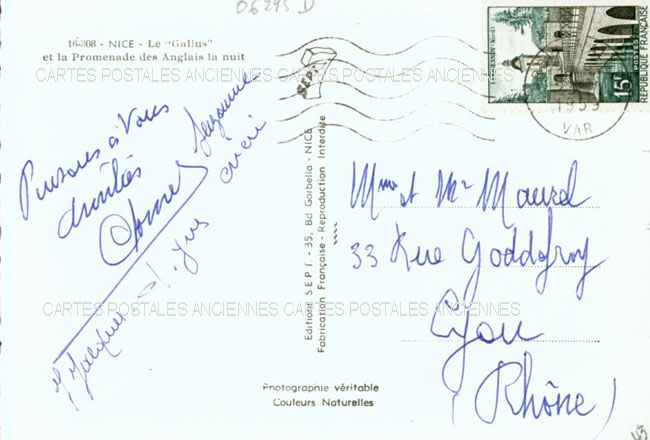 06295 D
16-308 - NICE - Le "Gallus"
et la Promenade des Anglais la nuit
CARTES POSTALES ANCIENNES CARTES POSTALES ANCIENNES
Pensons à Vous
Amitiés
Suzanne
Jacques
Yves
CARTES POSTALES ANCIENNES CARTES POSTALES ANCIENNES
Editions S E P T. - 35, Bd Gorbella - NICE
Fabrication Française - Reproduction Interdite
Photographie véritable
Couleurs Naturelles
15F
POSTES
REPUBLIQUE FRANÇAISE
VAR
Mme et Mr Maurel
33 Rue Goddefroy
Lyon
(Rhône)
43